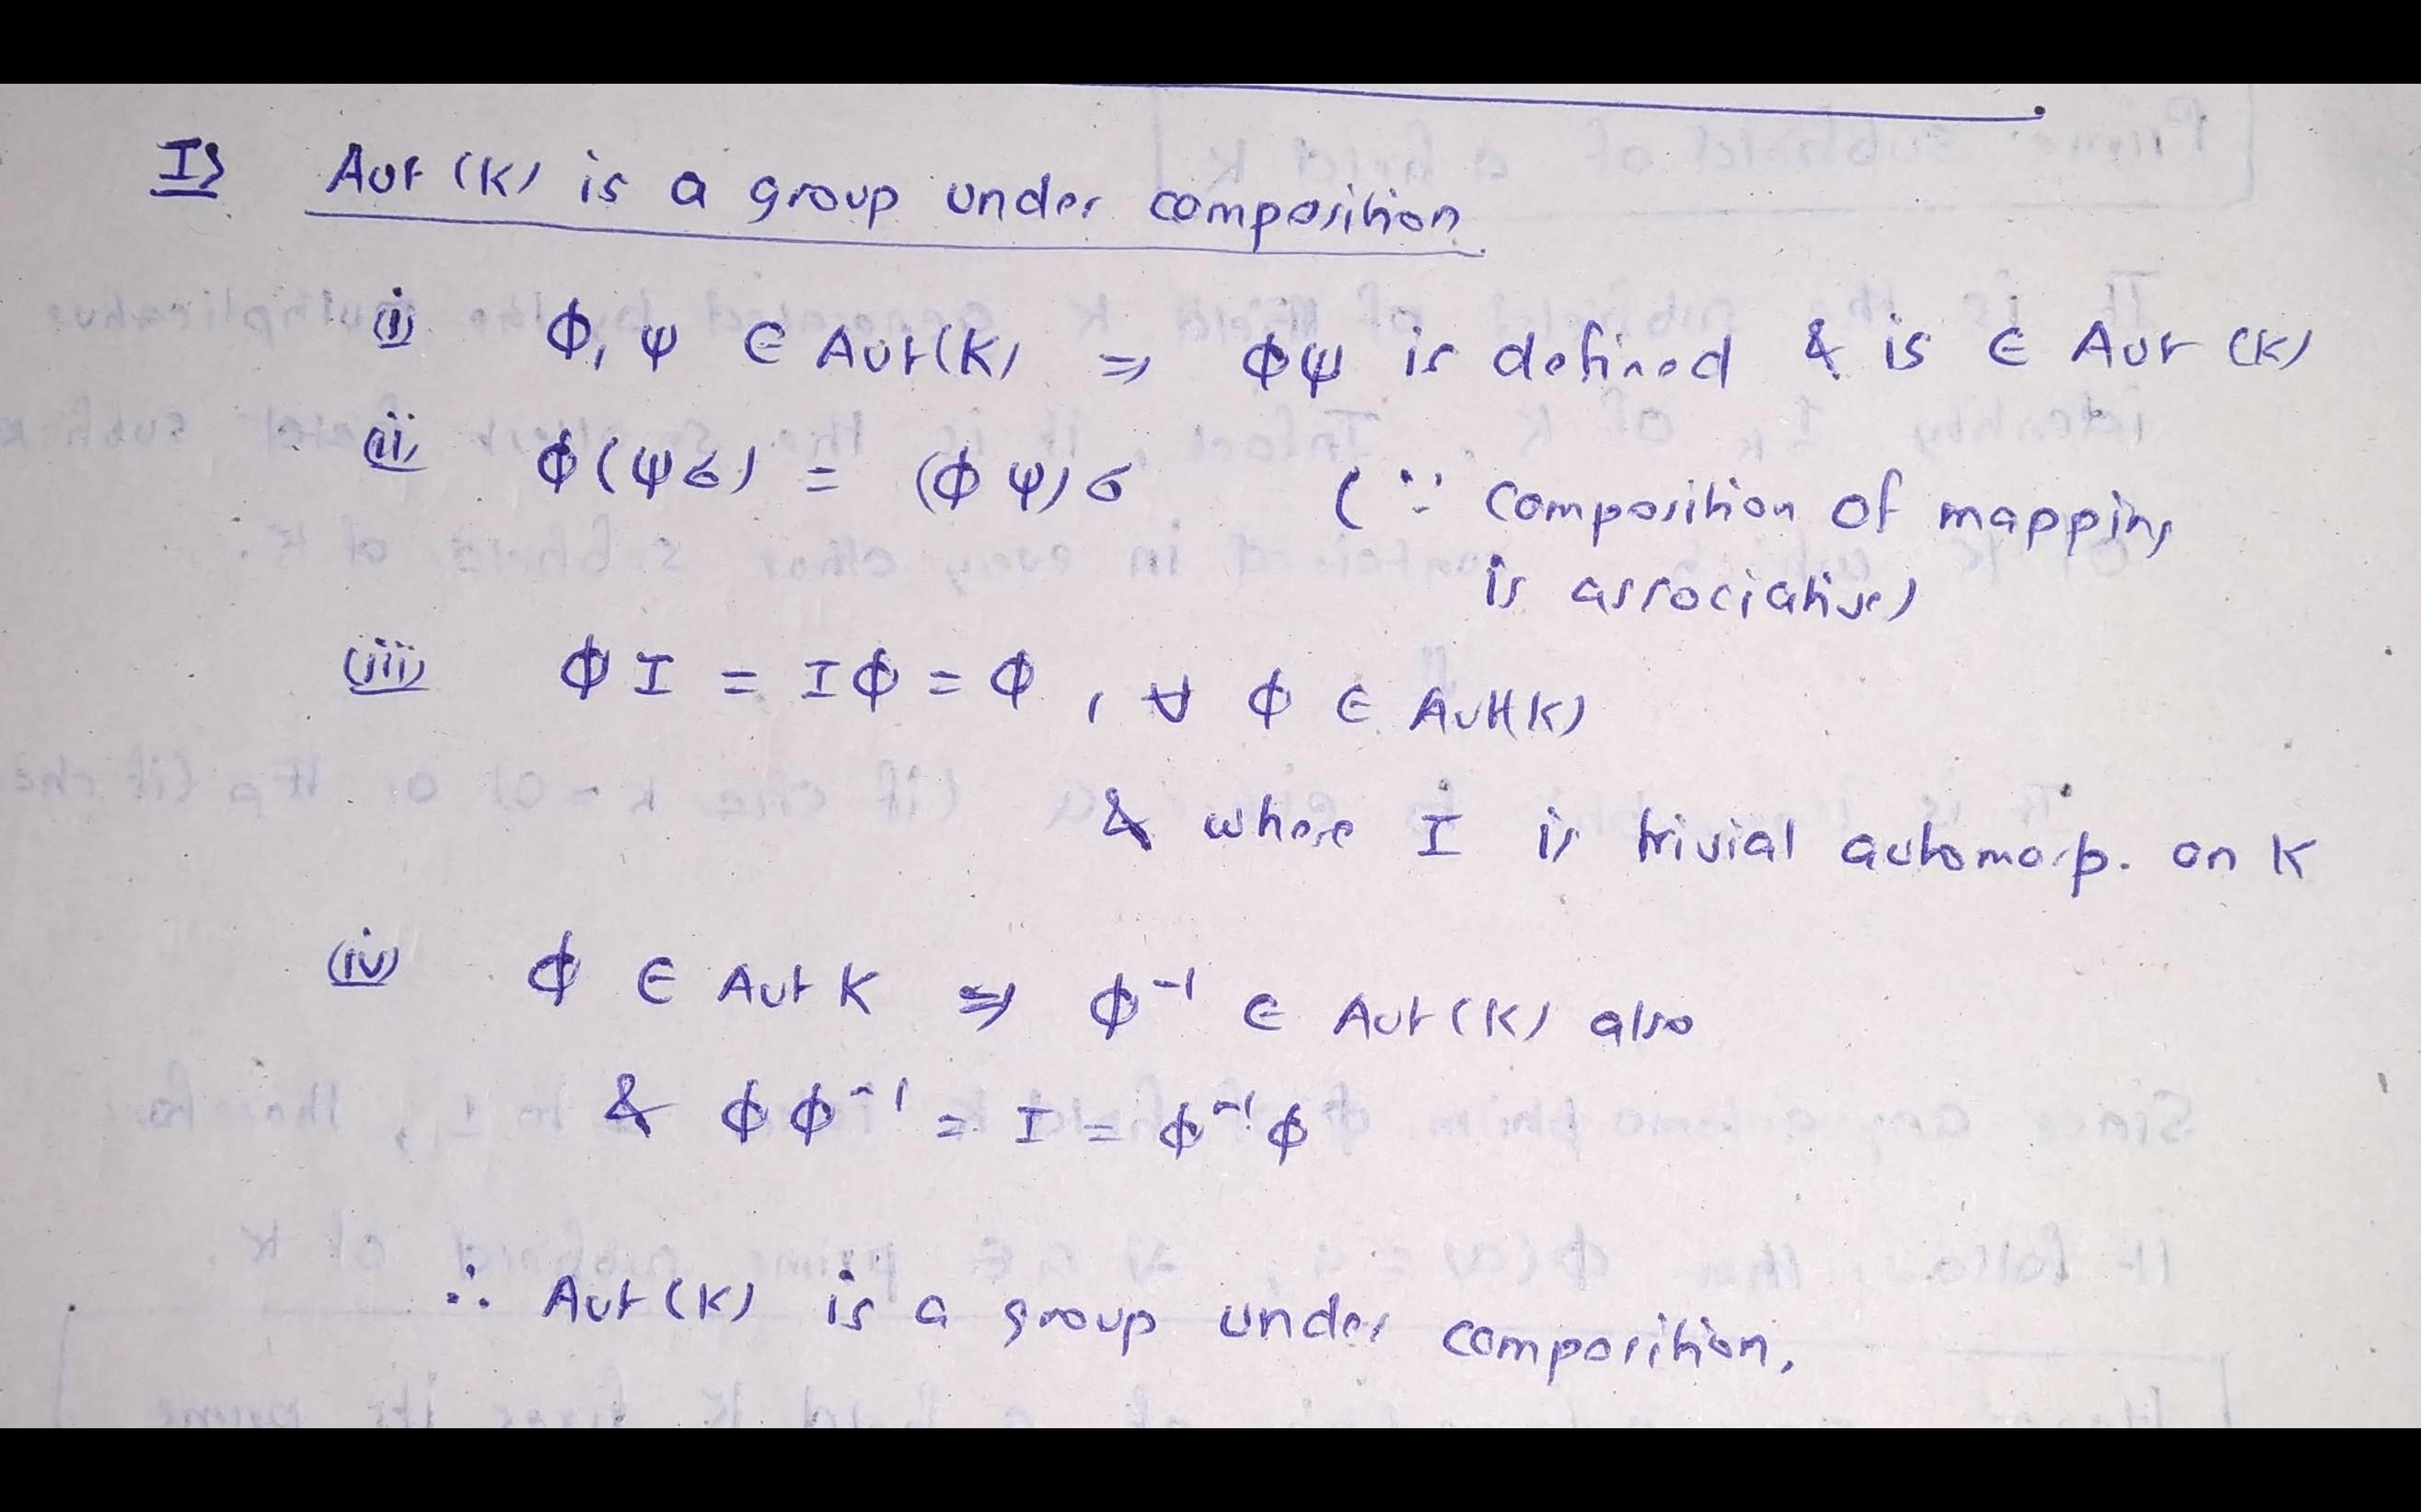 I} Aut (K) is a group under composition
(i) Φ, Ψ ∈ Aut(K) ⇒ ΦΨ is defined & is ∈ Aut (K)
(ii) Φ(Ψσ) = (ΦΨ)σ (∵ composition of mapping
is associative)
(iii) Φ I = I Φ = Φ, ∀ Φ ∈ Aut(K)
& where I is trivial automorp. on K
(iv) Φ ∈ Aut K ⇒ Φ⁻¹ ∈ Aut (K) also
& Φ Φ⁻¹ = I = Φ⁻¹ Φ
∴ Aut (K) is a group under composition.